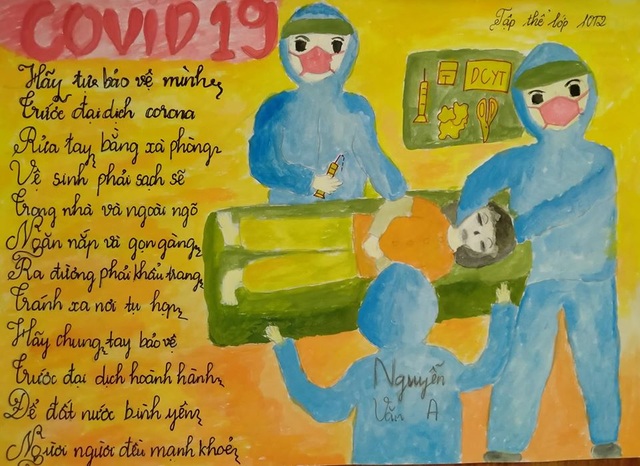 COVID 19
Tập thể lớp 10T2
Hãy tự bảo vệ mình
Trước đại dịch corona
Rửa tay bằng xà phòng
Vệ sinh phải sạch sẽ
Trong nhà và ngoài ngõ
Ngăn nắp và gọn gàng
Ra đường phải khẩu trang
Tránh xa nơi tụ họp
Hãy chung tay bảo vệ
Trước đại dịch hoành hành
Để đất nước bình yên
Người người đều mạnh khoẻ
DCYT
Nguyễn
Văn A